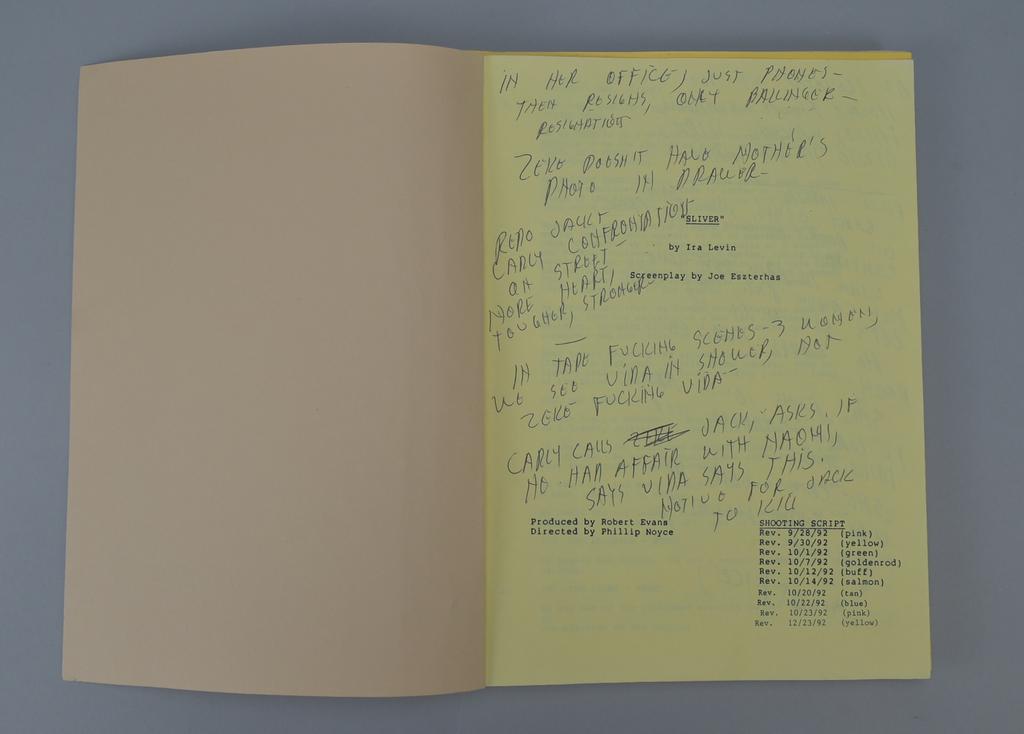 IN HER OFFICE, JUST PHONES—
THEN RESIGNS, ONLY BALLINGER—
RESIGNATION
ZEKE DOESN'T HAVE MOTHER'S
PHOTO IN DRAWER—
REDO JACK
CARLY CONFRONTATION
ON STREET—
MORE HEART,
TOUGHER, STRONGER—
"SLIVER"
by Ira Levin
Screenplay by Joe Eszterhas
IN TAPE FUCKING SCENES—3 WOMEN,
WE SEE VIDA IN SHOWER, NOT
ZEKE FUCKING VIDA—
CARLY CALLS ZEKE JACK, ASKS IF
HE HAD AFFAIR WITH NAOMI,
SAYS VIDA SAYS THIS.
MOTIVE FOR JACK
TO KILL
Produced by Robert Evans
Directed by Phillip Noyce
SHOOTING SCRIPT
Rev. 9/28/92 (pink)
Rev. 9/30/92 (yellow)
Rev. 10/1/92 (green)
Rev. 10/7/92 (goldenrod)
Rev. 10/12/92 (buff)
Rev. 10/14/92 (salmon)
Rev. 10/20/92 (tan)
Rev. 10/22/92 (blue)
Rev. 10/23/92 (pink)
Rev. 12/23/92 (yellow)